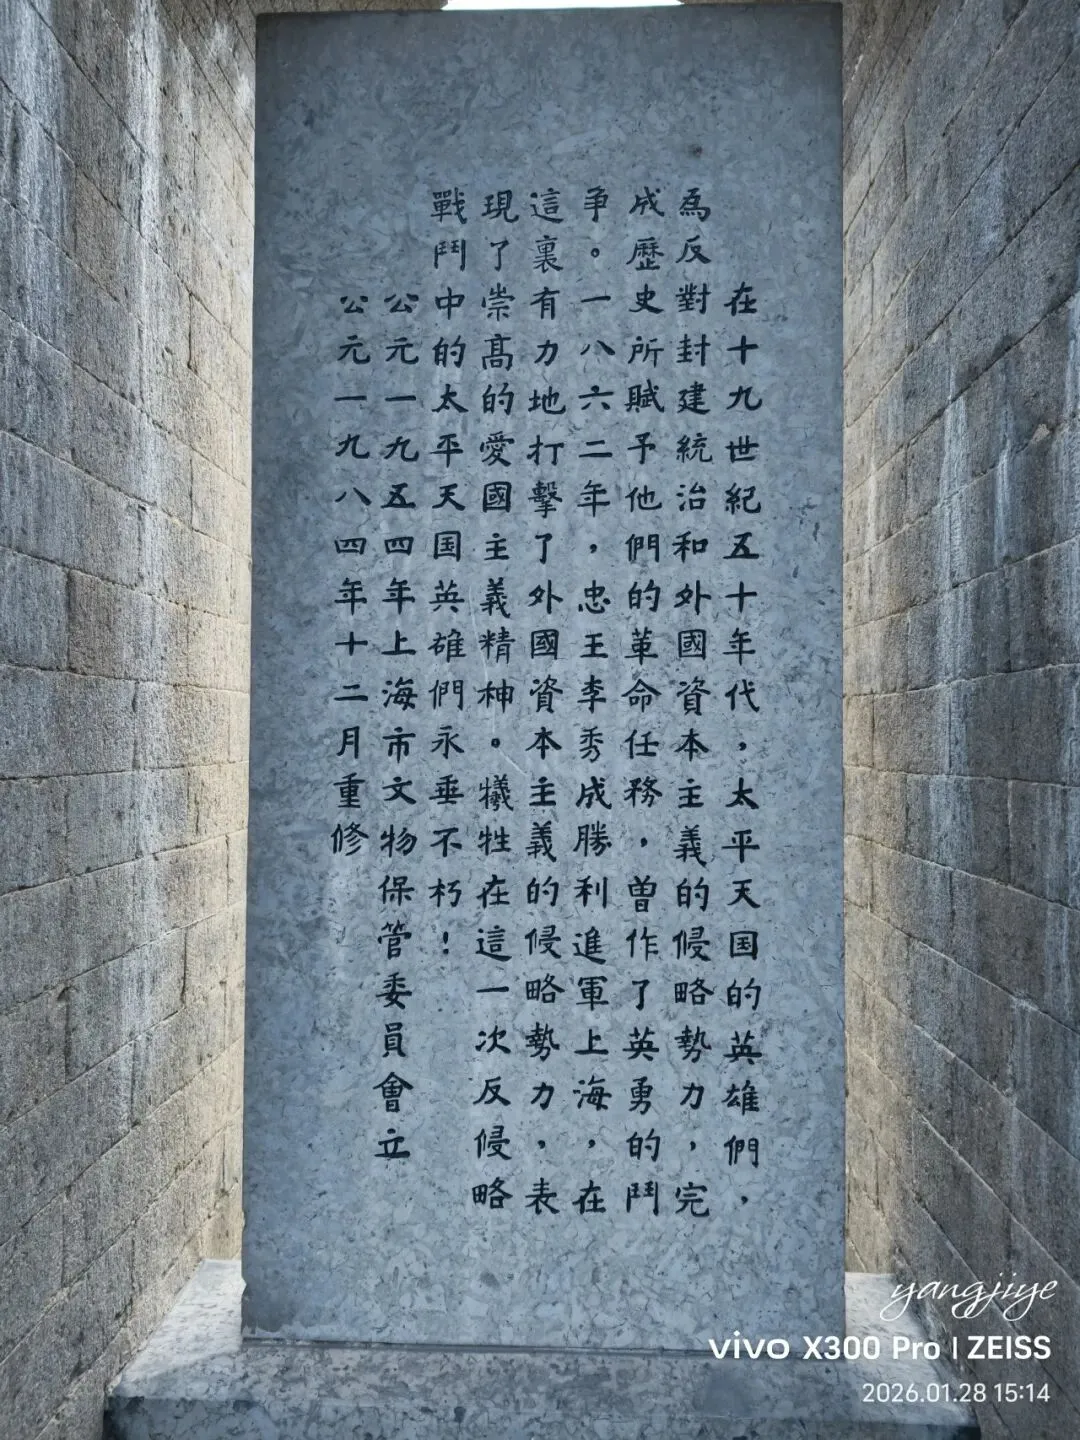 在十九世紀五十年代，太平天国的英雄們，
為反對封建統治和外國資本主義的侵略勢力，完
成歷史所賦予他們的革命任務，曾作了英勇的鬥
争。一八六二年，忠王李秀成勝利進軍上海，在
這裏有力地打擊了外國資本主義的侵略勢力，表
現了崇高的愛國主義精神。犧牲在這一次反侵略
戰鬥中的太平天国英雄們永垂不朽！
公元一九五四年上海市文物保管委員會立
公元一九八四年十二月重修
yangjiye
vivo X300 Pro | ZEISS
2026.01.28 15:14